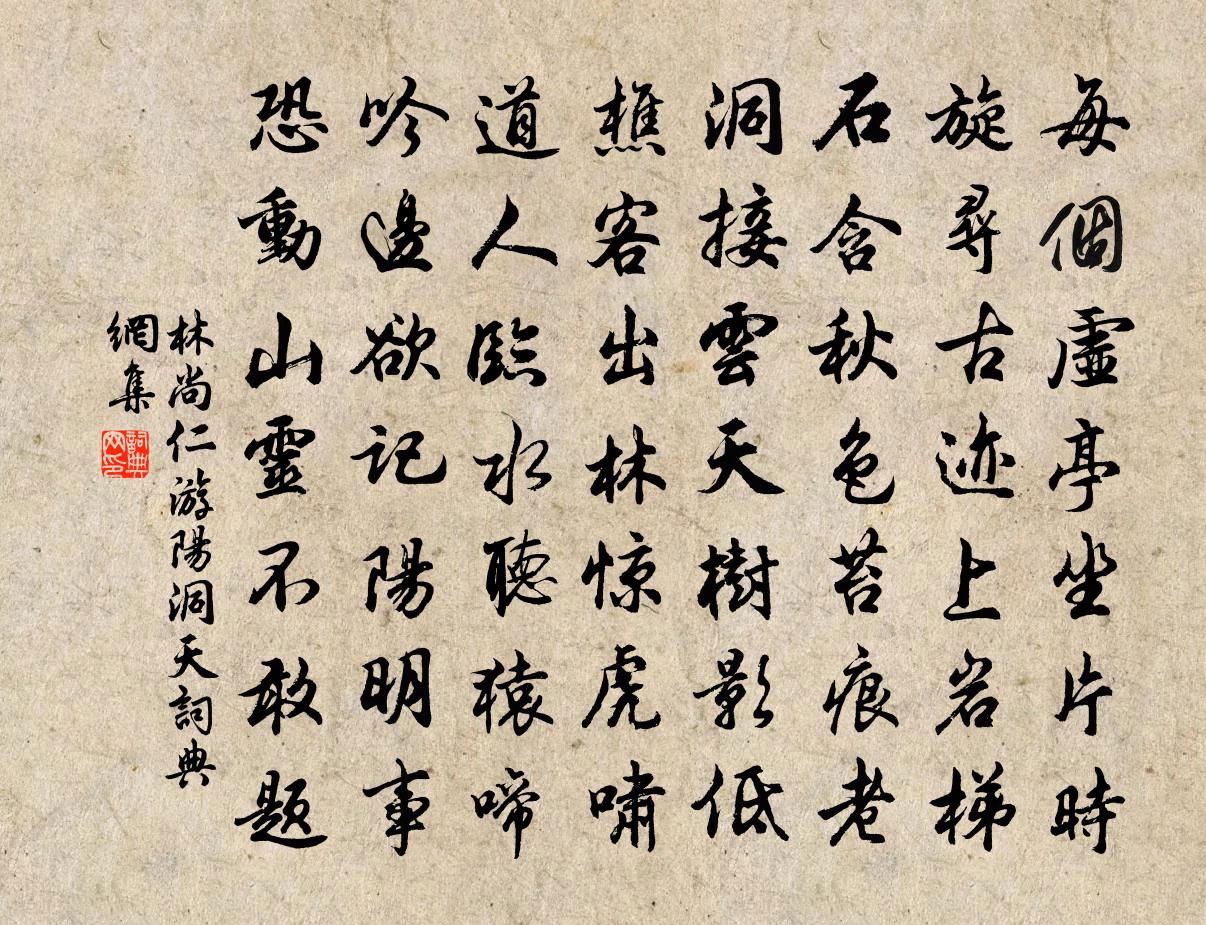 每個虛亭坐片時
旋尋古迹上岩梯
石含秋色苔痕老
洞接雲天樹影低
樵客出林惊虎嘯
道人臨水聽猿啼
吟邊欲記陽明事
恐動山靈不敢題
林尚仁游陽洞天詞典
網集
詞典
网印